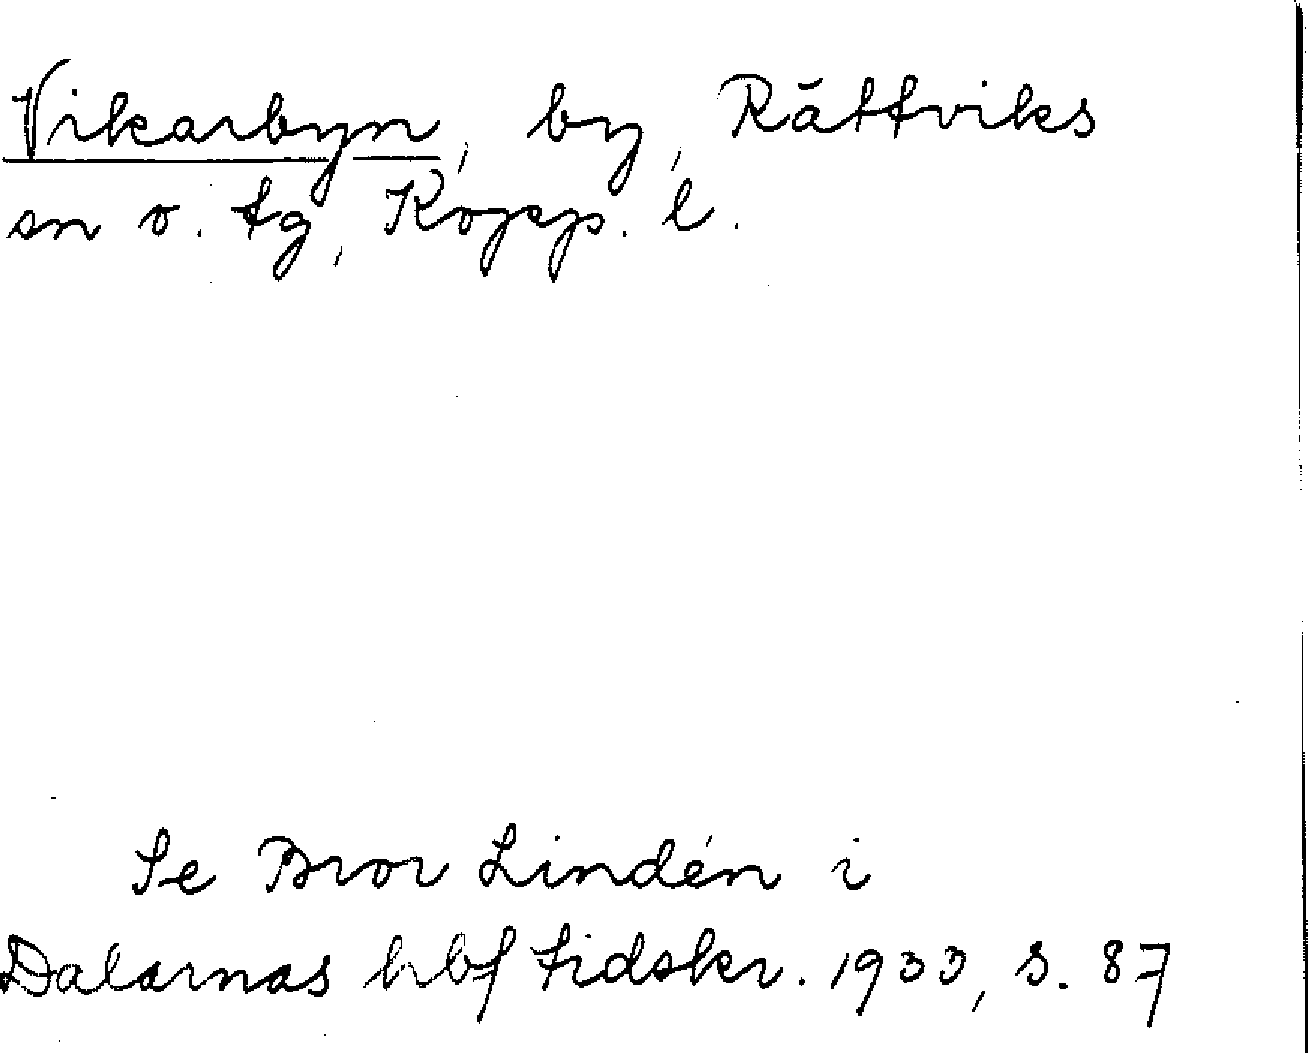 Vikarbyn, by, Rättviks
sn o. tg, Kopp. l.
Se Bror Lindén i
Dalarnas hbf tidskr. 1933, s. 87